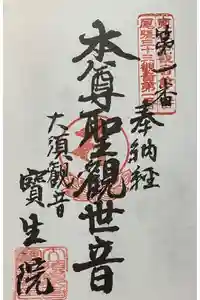 奉納経
本尊聖觀世音
大須観音
寳生院
第一番
尾張三十三観音第一